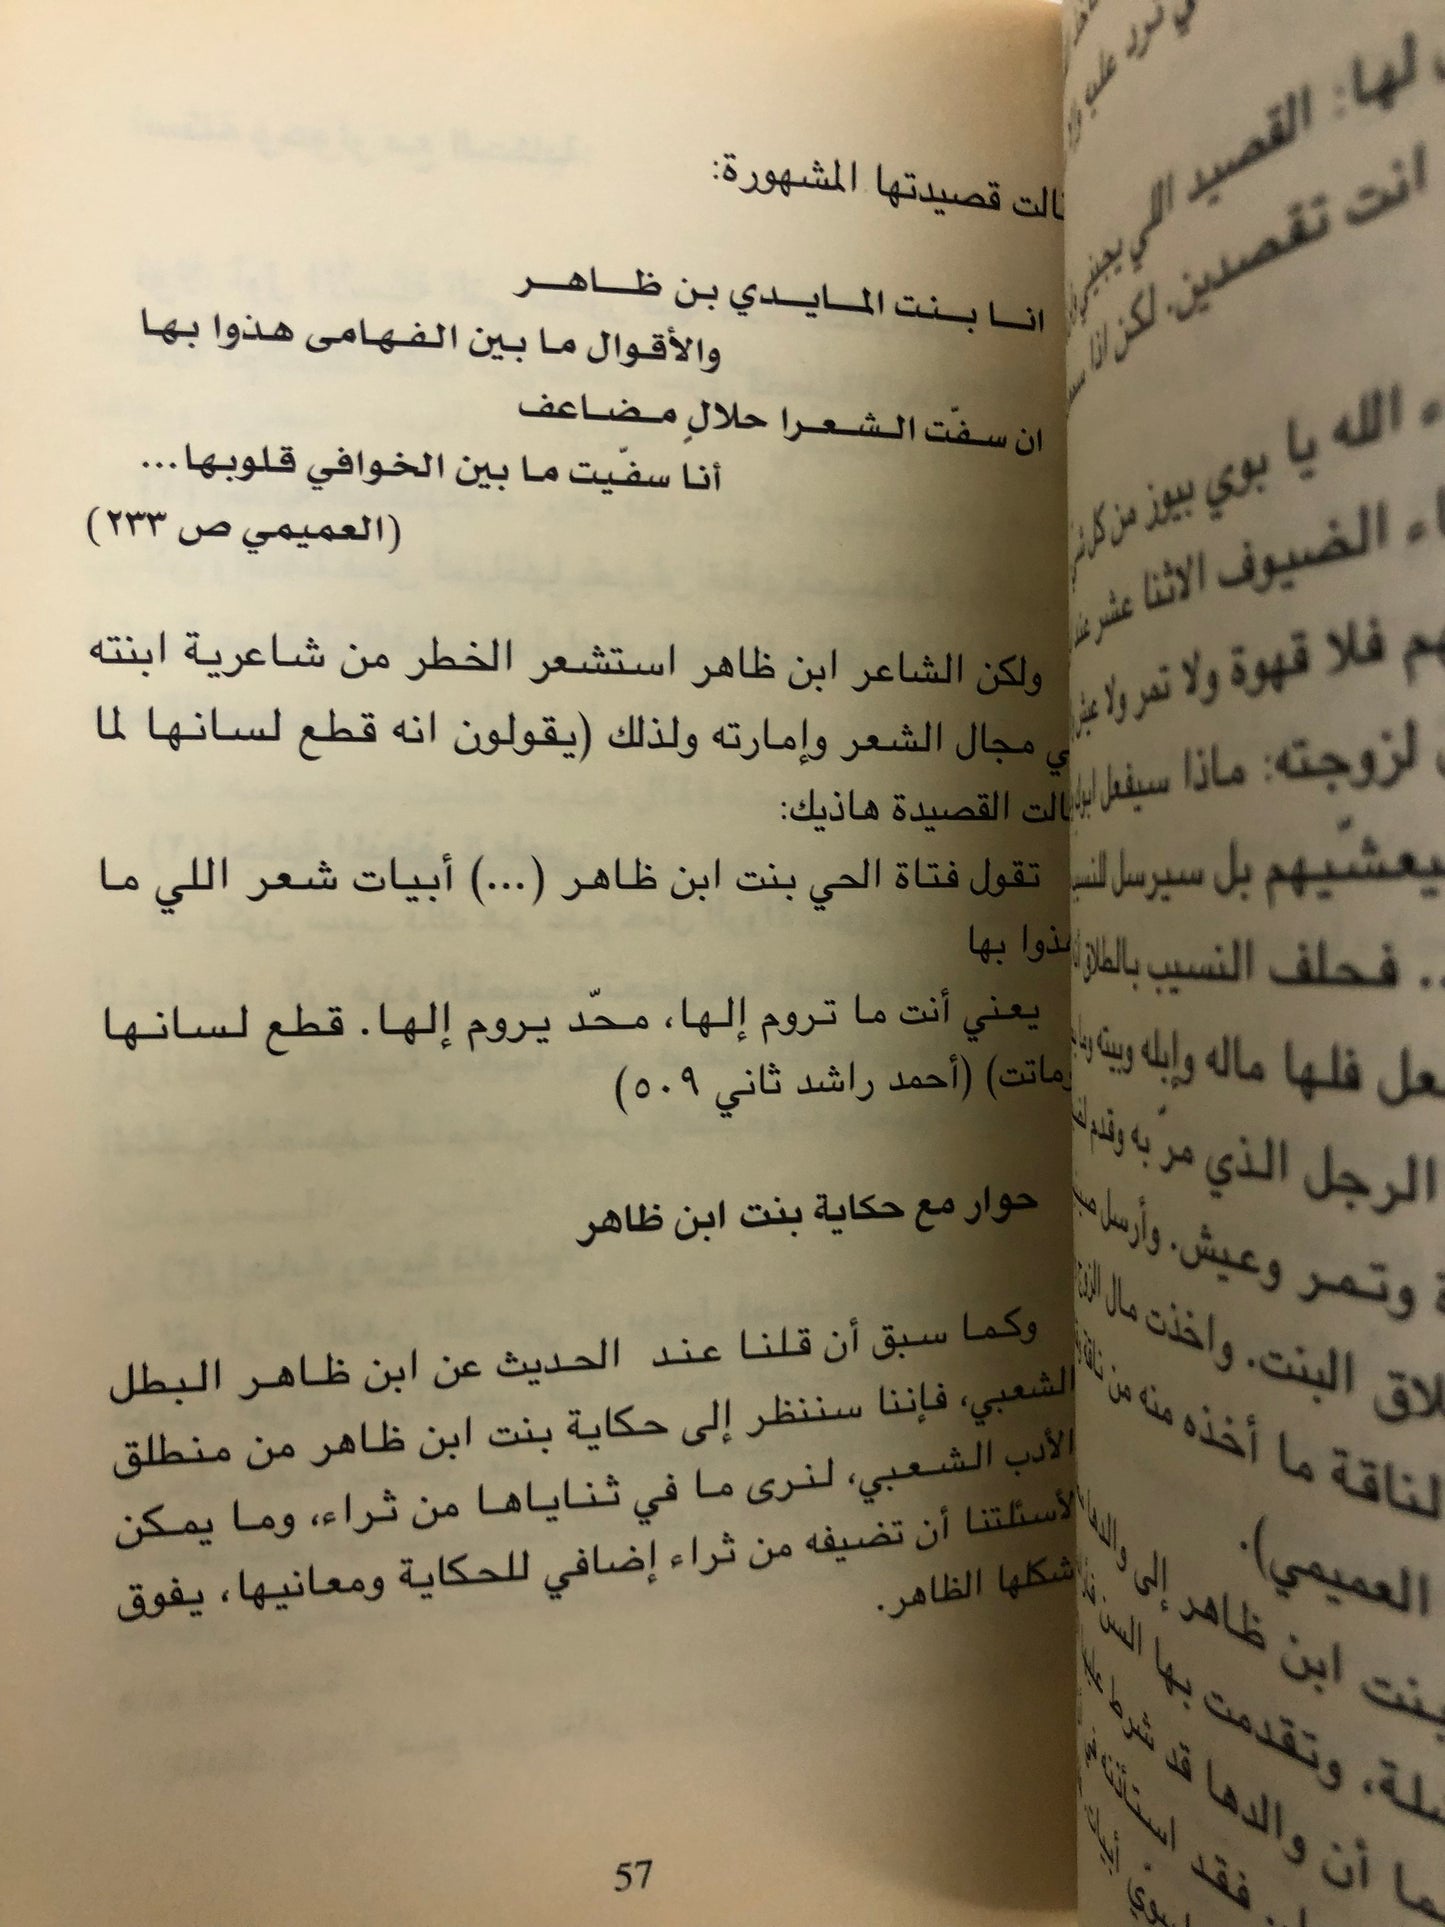 قصيدتها المشهورة:
انا بنت المايدي بن ظاهر
والأقوال ما بين الفهامى هذوا بها
ان سفّت الشعرا حلالٍ مضاعف
أنا سفّيت ما بين الخوافي قلوبها...
(العميمي ص ٢٣٣)
ولكن الشاعر ابن ظاهر استشعر الخطر من شاعرية ابنته
مجال الشعر وإمارته ولذلك (يقولون انه قطع لسانها لما
القصيدة هاذيك:
تقول فتاة الحي بنت ابن ظاهر (...) أبيات شعر اللي ما
بها
يعني أنت ما تروم إلها، محّد يروم إلها. قطع لسانها
وماتت) (أحمد راشد ثاني ٥٠٩)
حوار مع حكاية بنت ابن ظاهر
وكما سبق أن قلنا عند الحديث عن ابن ظاهر البطل
الشعبي، فإننا سننظر إلى حكاية بنت ابن ظاهر من منطلق
الأدب الشعبي، لنرى ما في ثناياها من ثراء، وما يمكن
لأسئلتنا أن تضيفه من ثراء إضافي للحكاية ومعانيها، يفوق
شكلها الظاهر.
57
لها: القصيد اللي
انت تقصدين. لكن انا
الله يا بوي بيوز من كل
الضيوف الاثنا عشر
فلا قهوة ولا تمر ولا
لزوجته: ماذا سيفعل
بل سيرسل
فحلف النسيب بالطلاق
فلها ماله وإبله وبيته
الرجل الذي مرّ به وقدم
وتمر وعيش. وأرسل
البنت. واخذت مال الزوج
ما أخذه منه من
العميمي).
بنت ابن ظاهر إلى
وتقدمت بها السن
أن والدها قد شرط
فقد